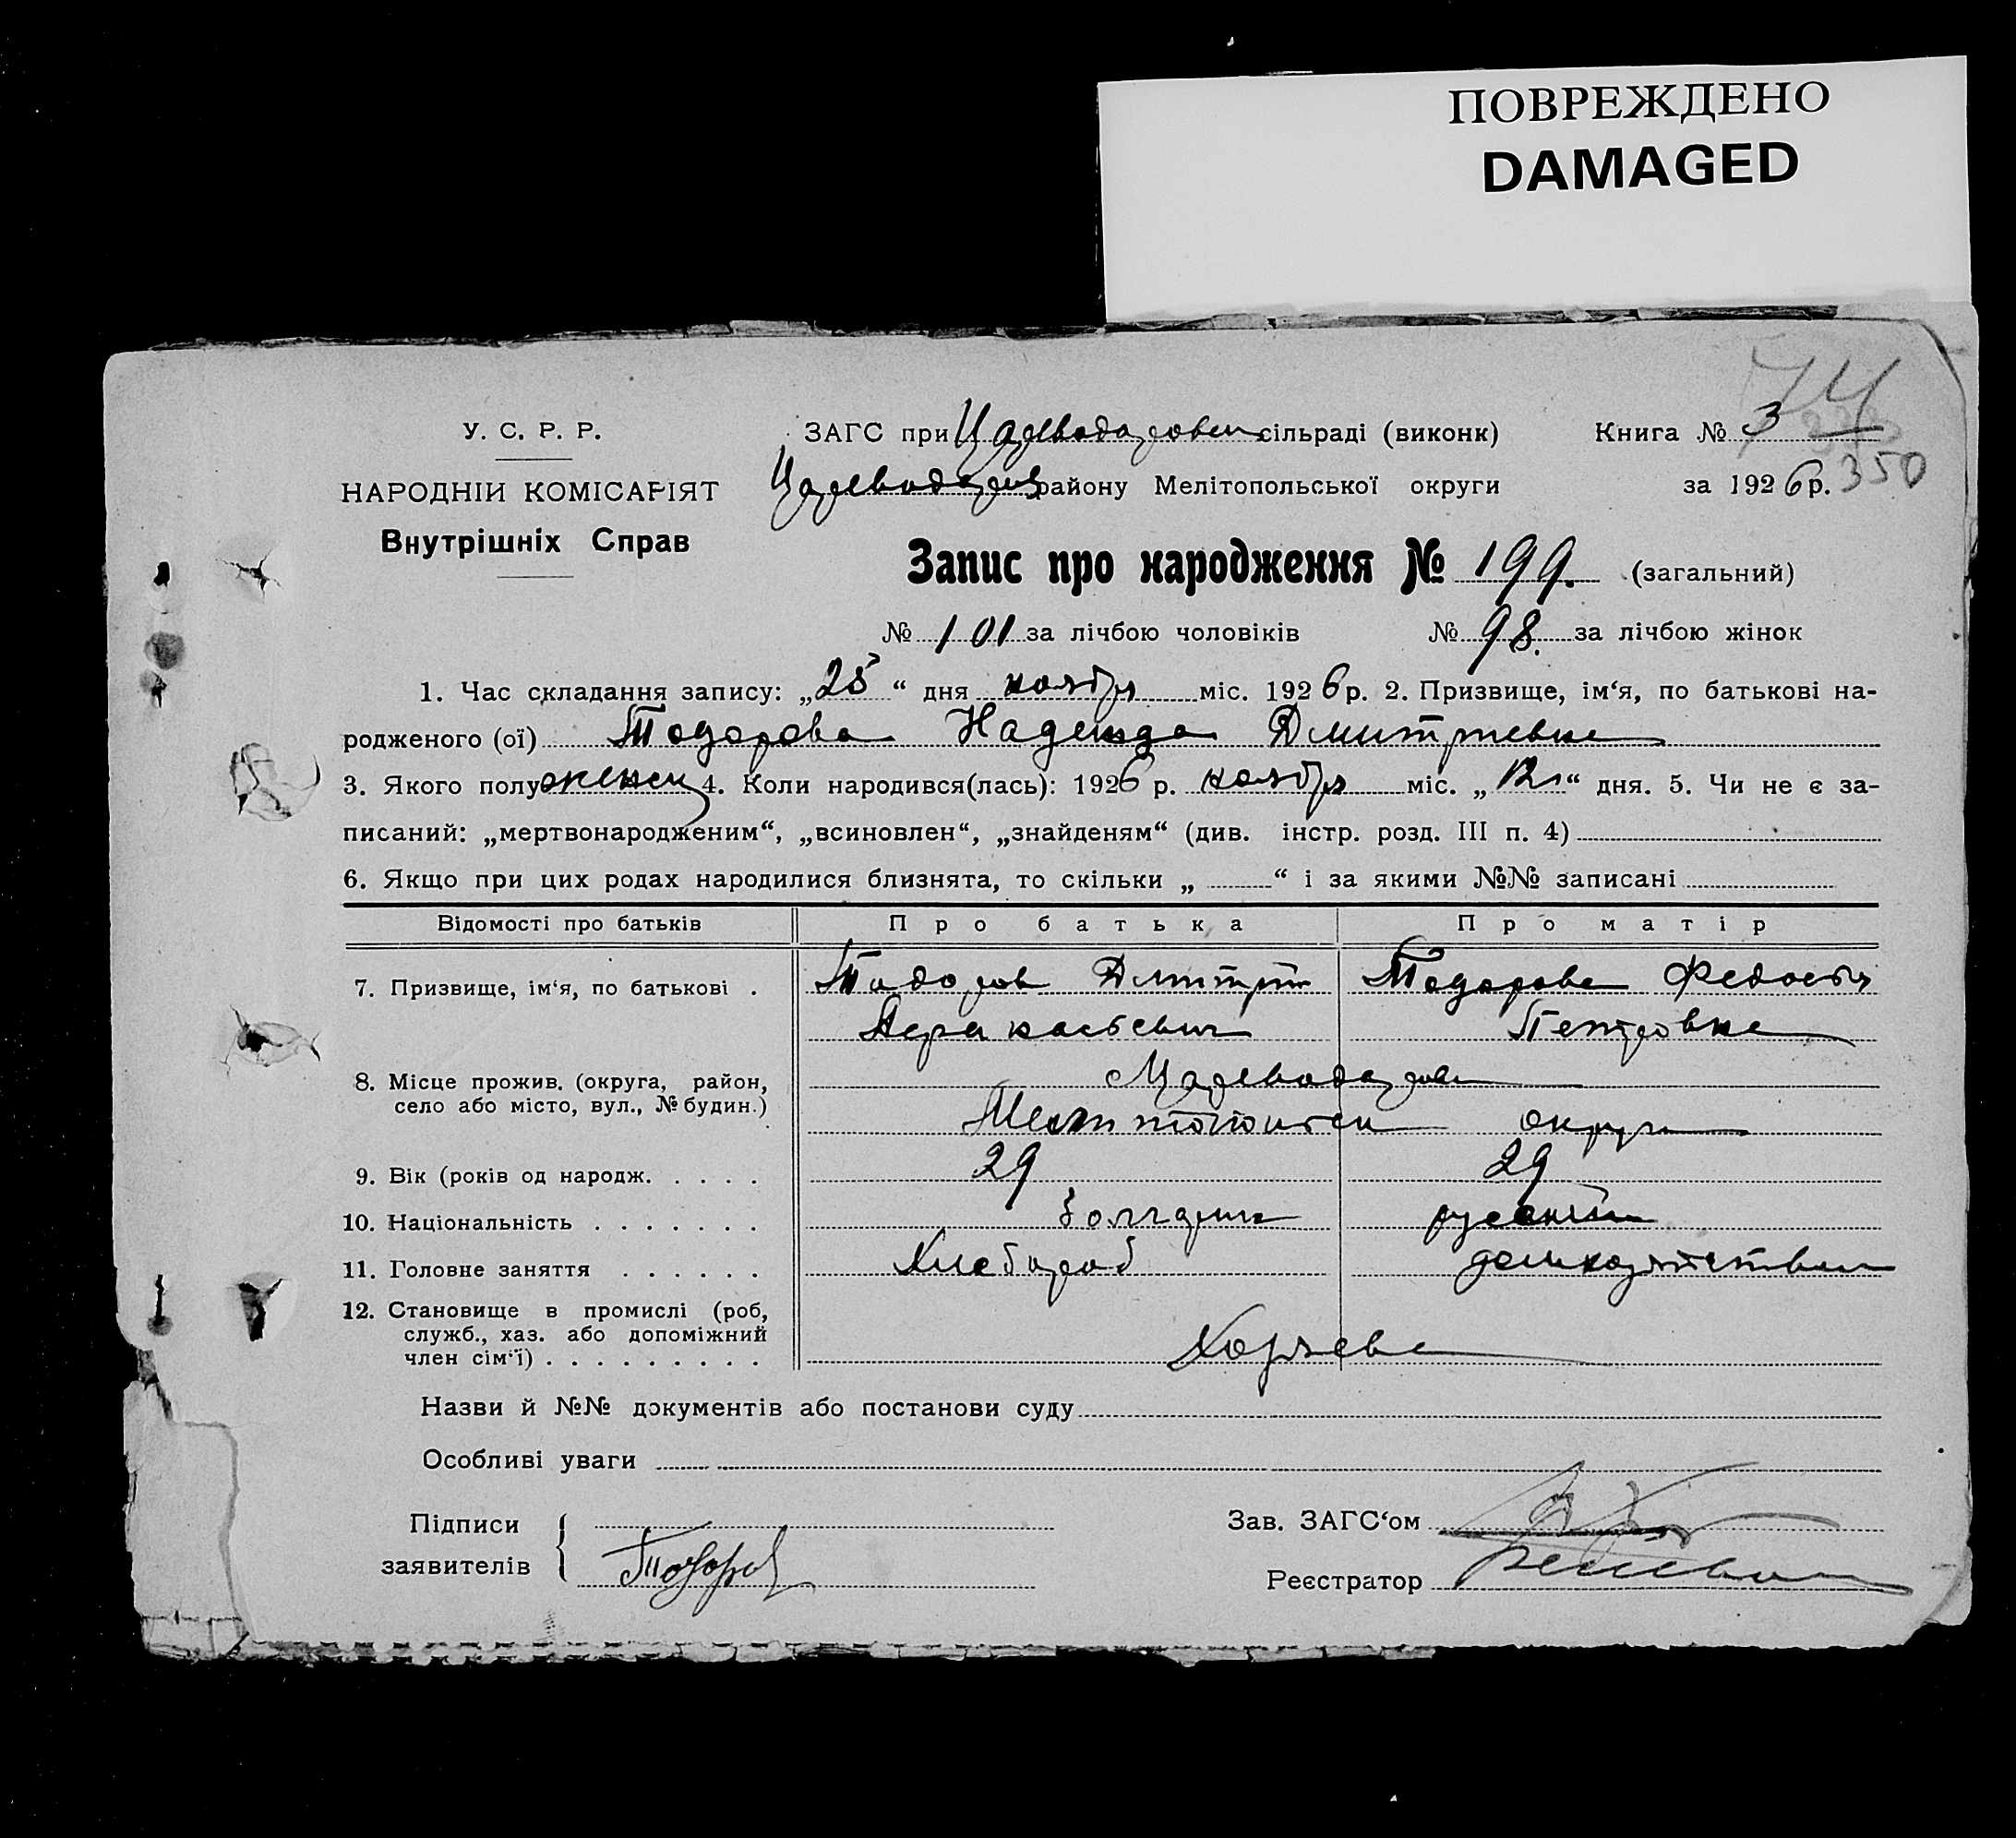 ПОВРЕЖДЕНО
DAMAGED
74
У. С. Р. Р.
ЗАГС при Царeводаровск сільраді (виконк)
Книга № 3
НАРОДНІЙ КОМІСАРІЯТ
Царeводар району Мелітопольської округи
за 1926 р. 350
Внутрішніх Справ
Запис про народження № 199. (загальний)
№ 101 за лічбою чоловіків № 98. за лічбою жінок
1. Час складання запису: „25“ дня ноября міс. 1926 р. 2. Призвище, ім‘я, по батькові на-
родженого (ої) Тодорова Надежда Дмитриевна
3. Якого полу женск 4. Коли народився(лась): 1926 р. ноября міс. „ “ дня. 5. Чи не є за-
писаний: „мертвонародженим“, „всиновлен“, „знайденям“ (див. інстр. розд. III п. 4)
6. Якщо при цих родах народилися близнята, то скільки „ “ і за якими №№ записані
Відомості про батьків Про батька Про матір
7. Призвище, ім‘я, по батькові . Тодоров Дмитрий Тодорова Федосия
Петровна
8. Місце прожив. (округа, район,
село або місто, вул., № будин.)
Мелитопольск округи
9. Вік (років од народж. . . . . 29 29
10. Національність . . . . . . . болгарин русский
11. Головне заняття . . . . . . Хлебороб домхозяйством
12. Становище в промислі (роб,
служб., хаз. або допоміжний
член сім‘ї) . . . . . . . . . Хозяева
Назви й №№ документів або постанови суду
Особливі уваги
Підписи
заявителів Тодоров
Зав. ЗАГС‘ом
Реєстратор